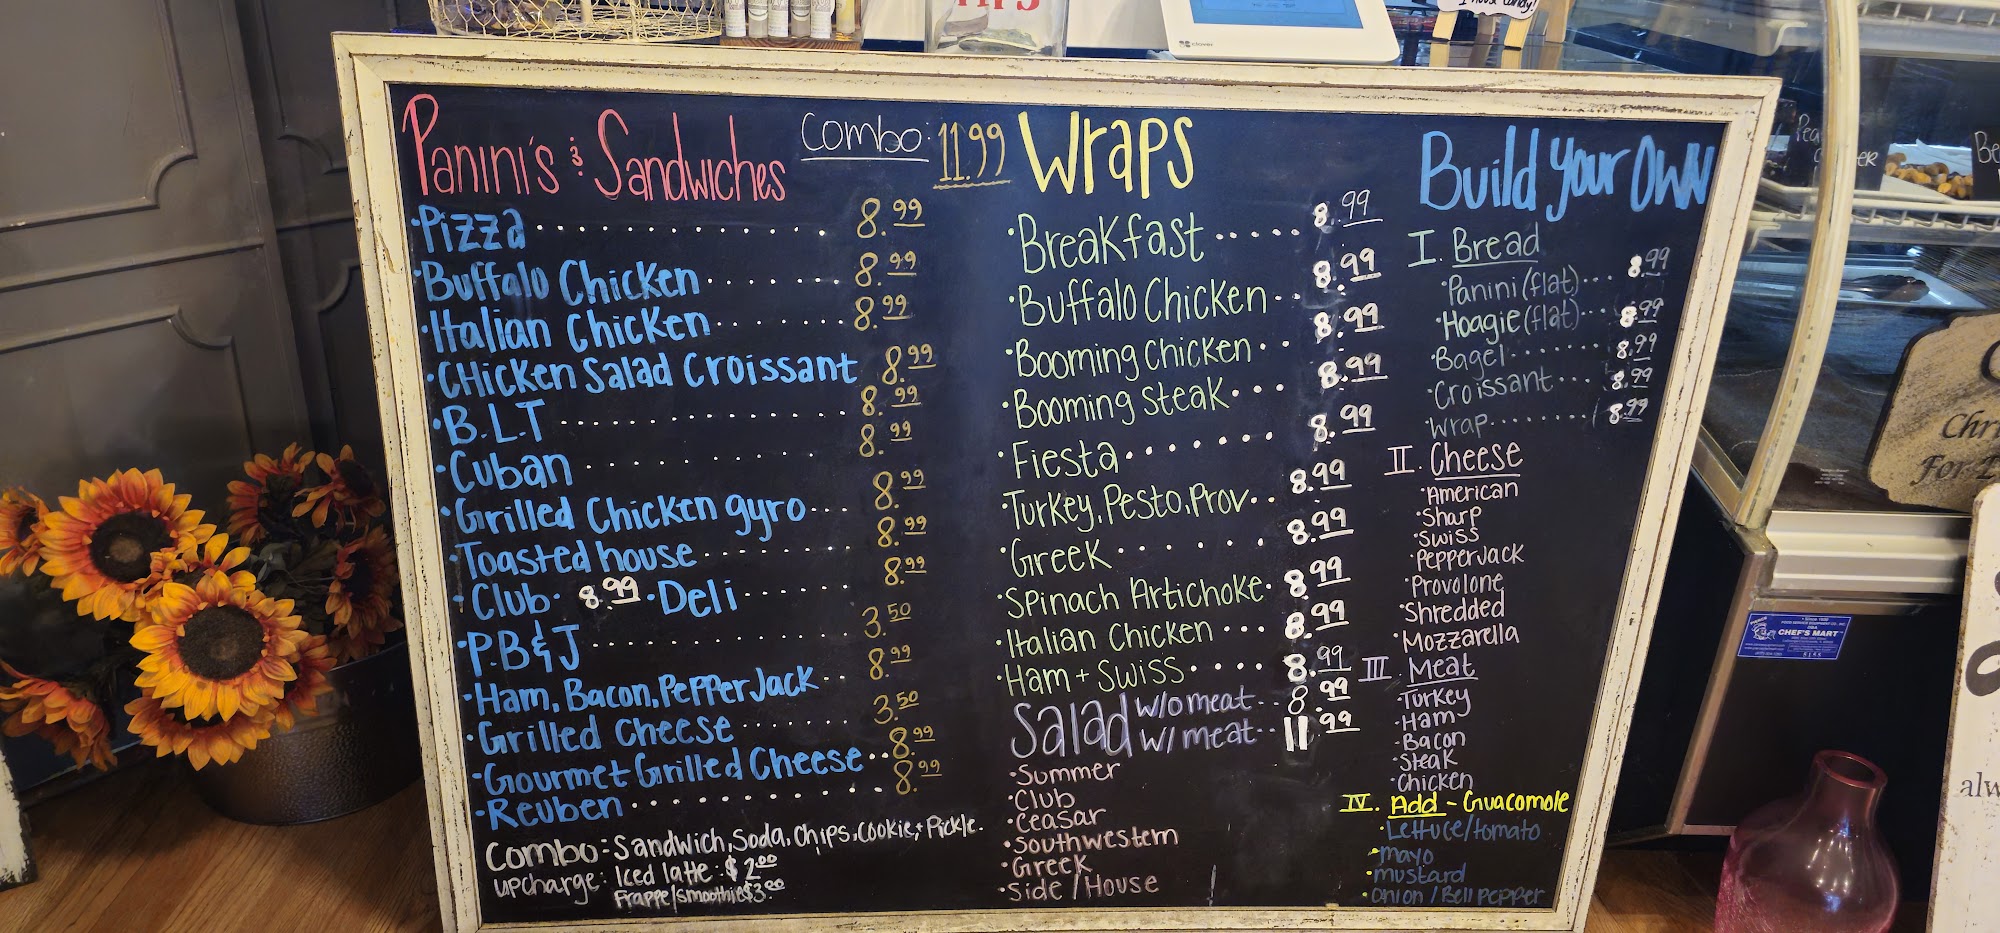 TIPS
clover
Panini's & Sandwiches
Combo: 11.99
• Pizza ............. 8.99
• Buffalo Chicken ....... 8.99
• Italian Chicken ....... 8.99
• CHicken Salad Croissant 8.99
• B.L.T ............ 8.99
• Cuban .......... 8.99
• Grilled Chicken gyro ... 8.99
• Toasted house ........ 8.99
• Club. 8.99 • Deli ...... 8.99
• P.B&J ............ 3.50
• Ham, Bacon, PePPerJack .. 8.99
• Grilled Cheese ....... 3.50
• Gourmet Grilled Cheese .. 8.99
• Reuben ............ 8.99
Combo: Sandwich, Soda, Chips, Cookie, + Pickle.
upcharge: Iced latte: $2.00
Frappe/smoothie $3.00
Wraps
• Breakfast ..... 8.99
• Buffalo Chicken .. 8.99
• Booming Chicken .. 8.99
• Booming Steak ... 8.99
• Fiesta ....... 8.99
• Turkey, Pesto, Prov .. 8.99
• Greek ...... 8.99
• Spinach Artichoke . 8.99
• Italian Chicken ... 8.99
• Ham + Swiss .... 8.99
Salad w/o meat .. 8.99
w/ meat .. 11.99
• Summer
• Club
• Ceasar
• Southwestern
• Greek
• Side / House
Build your OWN
I. Bread
• Panini (flat) ... 8.99
• Hoagie (flat) ... 8.99
• Bagel ........ 8.99
• Croissant ... 8.99
• Wrap ....... 8.99
II. Cheese
• American
• Sharp
• Swiss
• PepperJack
• Provolone
• Shredded
• Mozzarella
III. Meat
• Turkey
• Ham
• Bacon
• Steak
• Chicken
IV. Add - Guacomole
• Lettuce/tomato
• mayo
• mustard
• onion / Bell pepper
CHEF'S MART
Chr
For
alw